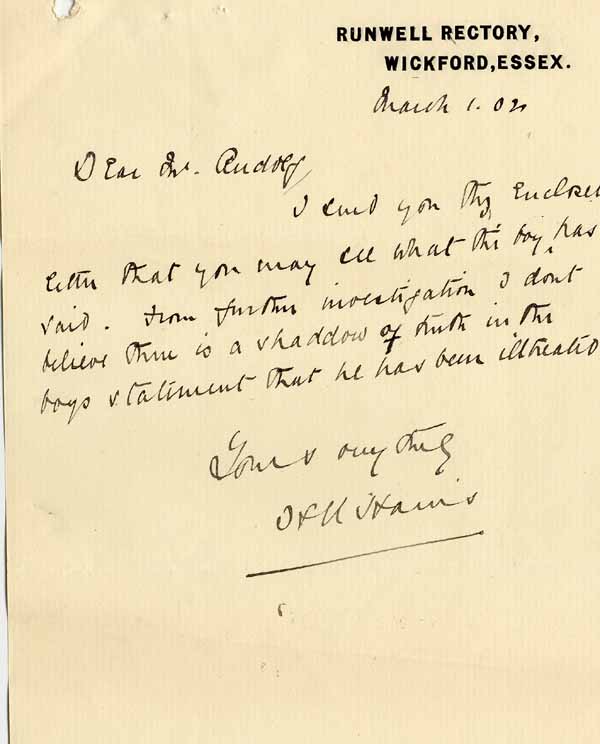 RUNWELL RECTORY,
WICKFORD, ESSEX.
March 1. 02
Dear Mr. Rudolf
I send you the enclosed
letter that you may see what the boy has
said. From further investigation I dont
believe there is a shaddow of truth in the
boys statement that he has been illtreated
Yours very truly
Harris